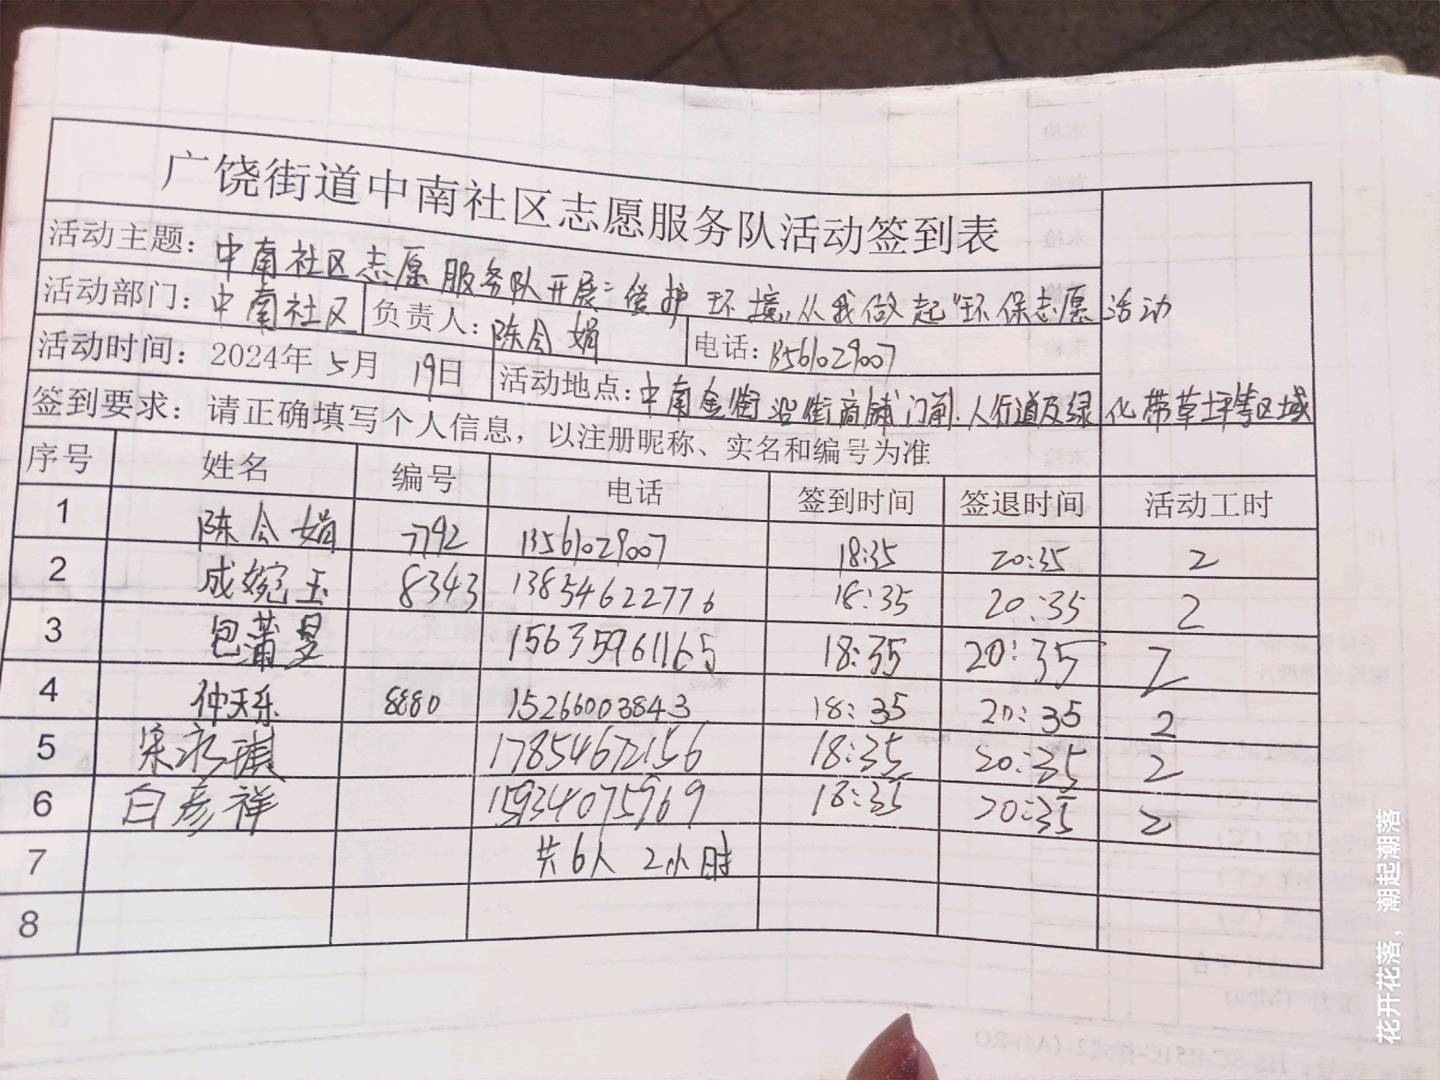 广饶街道中南社区志愿服务队活动签到表
活动主题：中南社区志愿服务队开展"爱护环境，从我做起"环保志愿活动
活动部门：中南社区 负责人：陈令娟 电话：13561029007
活动时间：2024年5月19日 活动地点：中南金街沿街商铺门前、人行道及绿化带草坪等区域
签到要求：请正确填写个人信息，以注册昵称、实名和编号为准
序号 姓名 编号 电话 签到时间 签退时间 活动工时
1 陈令娟 7792 13561029007 18:35 20:35 2
2 成婉玉 8343 13854622776 18:35 20:35 2
3 包蒲 15635961165 18:35 20:35 2
4 仲天乐 8880 15266003843 18:35 20:35 2
5 宋永琪 17854672156 18:35 20:35 2
6 白彦祥 15934075969 18:35 20:35 2
7 共6人 2小时
8
花开花落，潮起潮落